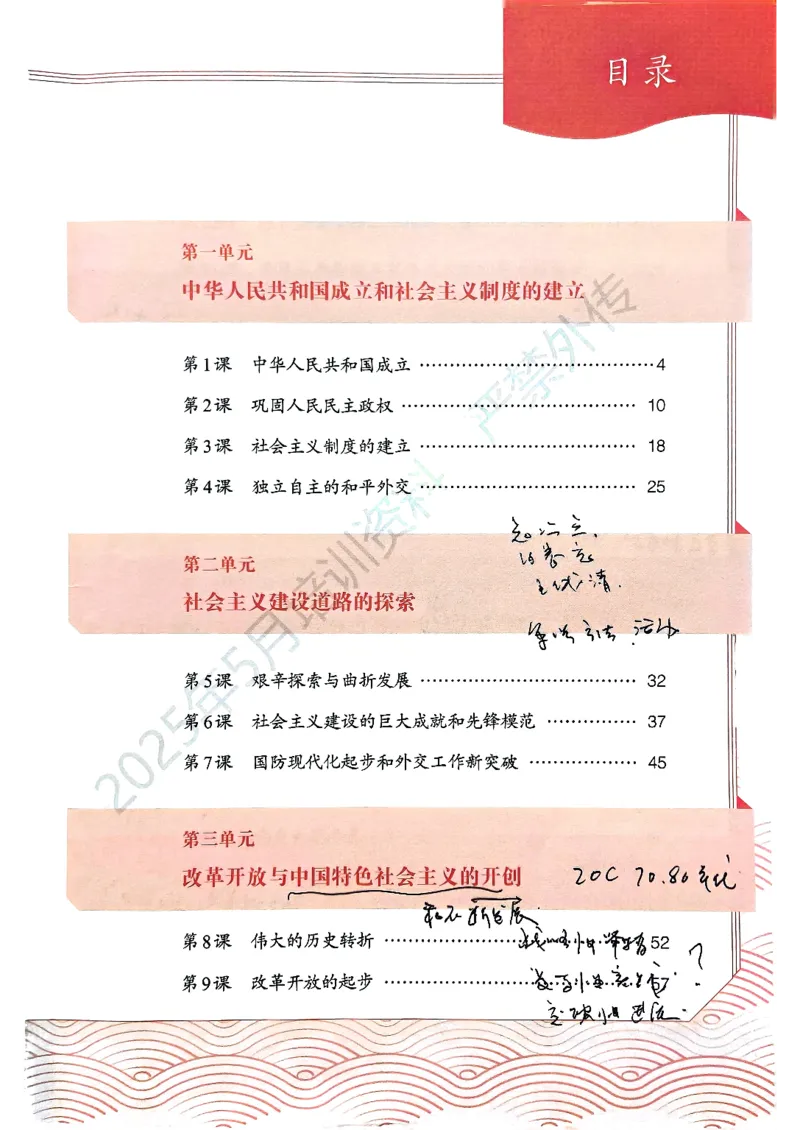 目录
第一单元
中华人民共和国成立和社会主义制度的建立
第1课 中华人民共和国成立 ……………………………………4
第2课 巩固人民民主政权 …………………………………… 10
第3课 社会主义制度的建立 ………………………………… 18
第4课 独立自主的和平外交 ………………………………… 25
第二单元
社会主义建设道路的探索
第5课 艰辛探索与曲折发展 ………………………………… 32
第6课 社会主义建设的巨大成就和先锋模范 …………… 37
第7课 国防现代化起步和外交工作新突破 ……………… 45
第三单元
改革开放与中国特色社会主义的开创
20C 70.80年代
第8课 伟大的历史转折 …………………… 52
第9课 改革开放的起步 ……………………
?
2025年5月培训资料 严禁外传